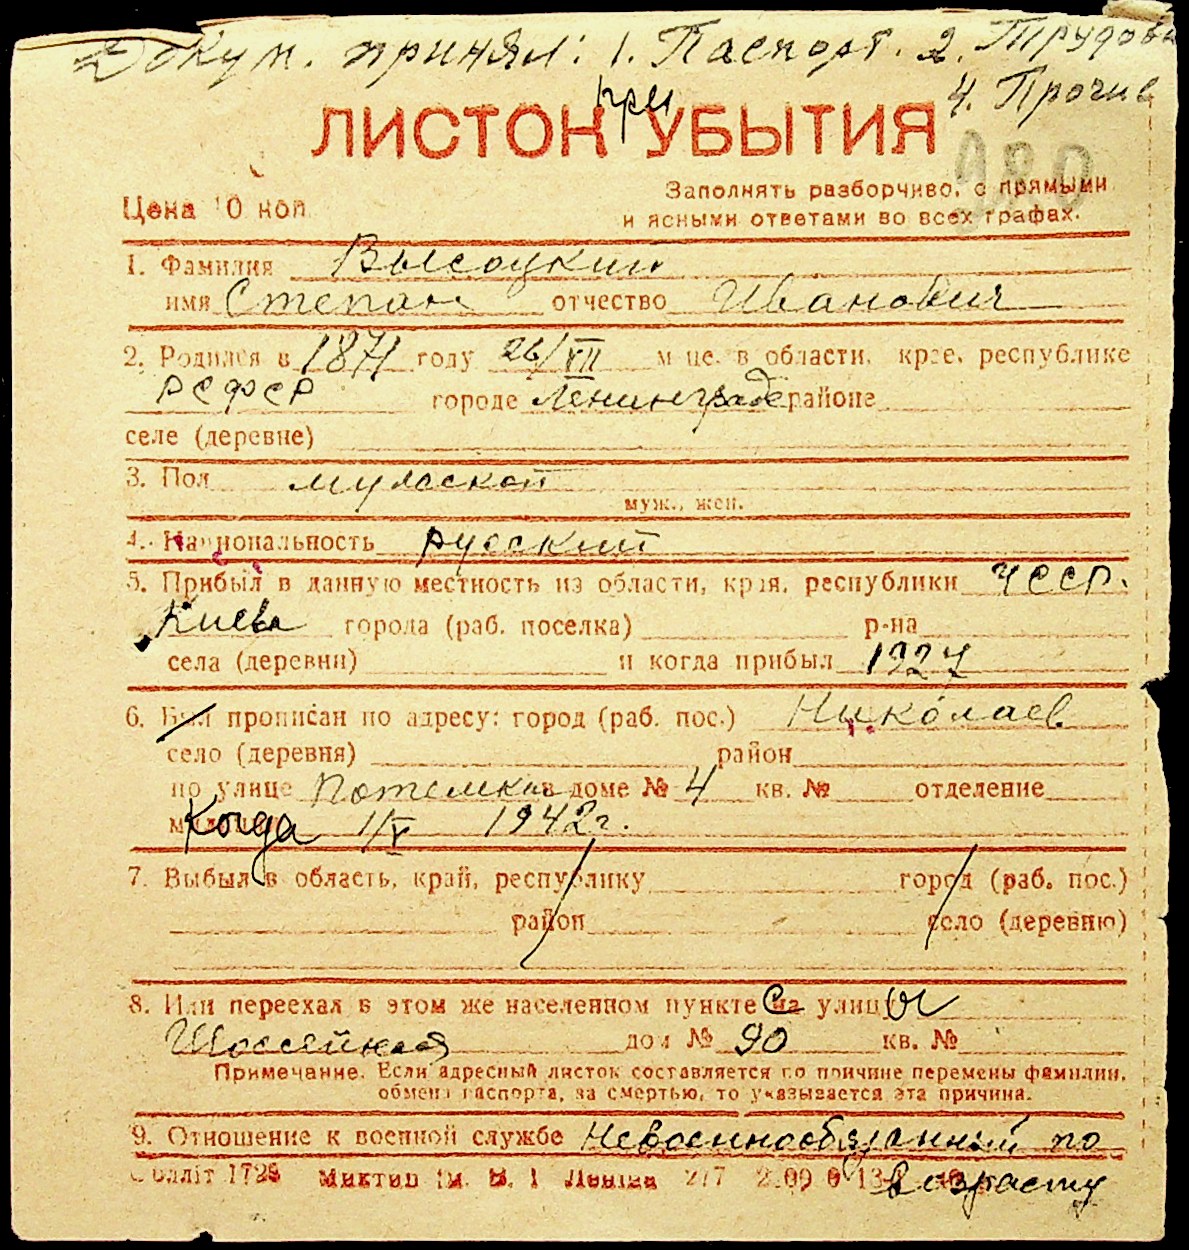 Докум. принял: 1. Паспорт. 2. Трудова
4. Прочие
при
ЛИСТОК УБЫТИЯ
980
Цена 10 коп
Заполнять разборчиво, с прямыми
и ясными ответами во всех графах.
1. Фамилия Высоцкий
имя Степан отчество Иванович
2. Родился в 1871 году 26/VII м-це. в области, крае, республике
РСФСР городе Ленинграде районе
селе (деревне)
3. Пол мужской
муж., жен.
4. Национальность русский
5. Прибыл в данную местность из области, края, республики УССР.
Киева города (раб. поселка) р-на
села (деревни) и когда прибыл 1927
6. Был прописан по адресу: город (раб. пос.) Николаев
село (деревня) район
по улице Потемкин в доме № 4 кв. № отделение
Когда 1/V 1942 г.
7. Выбыл в область, край, республику город (раб. пос.)
район село (деревню)
8. Или переехал в этом же населенном пункте с на улицы
Шоссейная дом № 90 кв. №
Примечание. Если адресный листок составляется по причине перемены фамилии,
обмена паспорта, за смертью, то указывается эта причина.
9. Отношение к военной службе Невоеннообязанный по
Облліт 1728 Миктип ім. В. І Леніна 277
возрасту